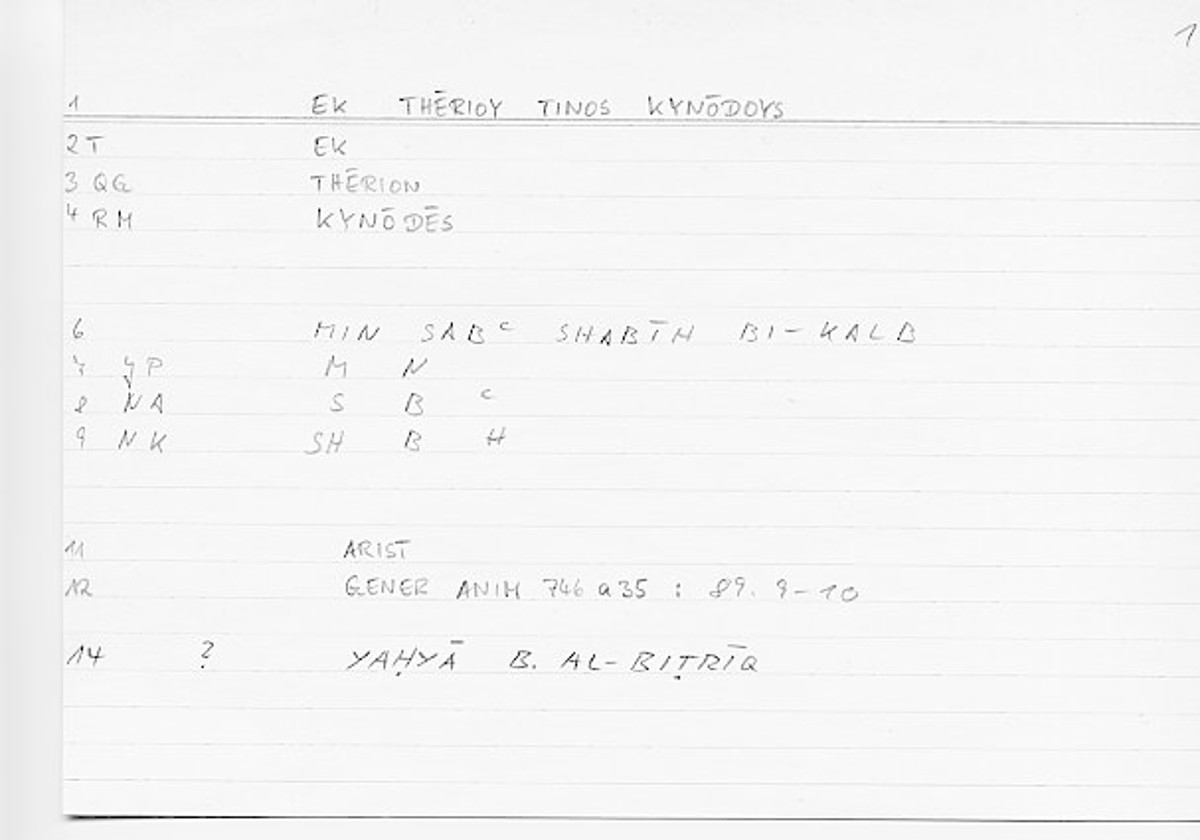 1
1 EK THĒRIOY TINOS KYNŌDOYS
2 T EK
3 QG THĒRION
4 RM KYNŌDĒS
6 MIN SABᶜ SHABĪH BI-KALB
7 YP M N
8 NA S B ᶜ
9 NK SH B H
11 ARIST
12 GENER ANIM 746 a 35 : 89. 9-10
14 ? YAḤYĀ B. AL-BIṬRĪQ